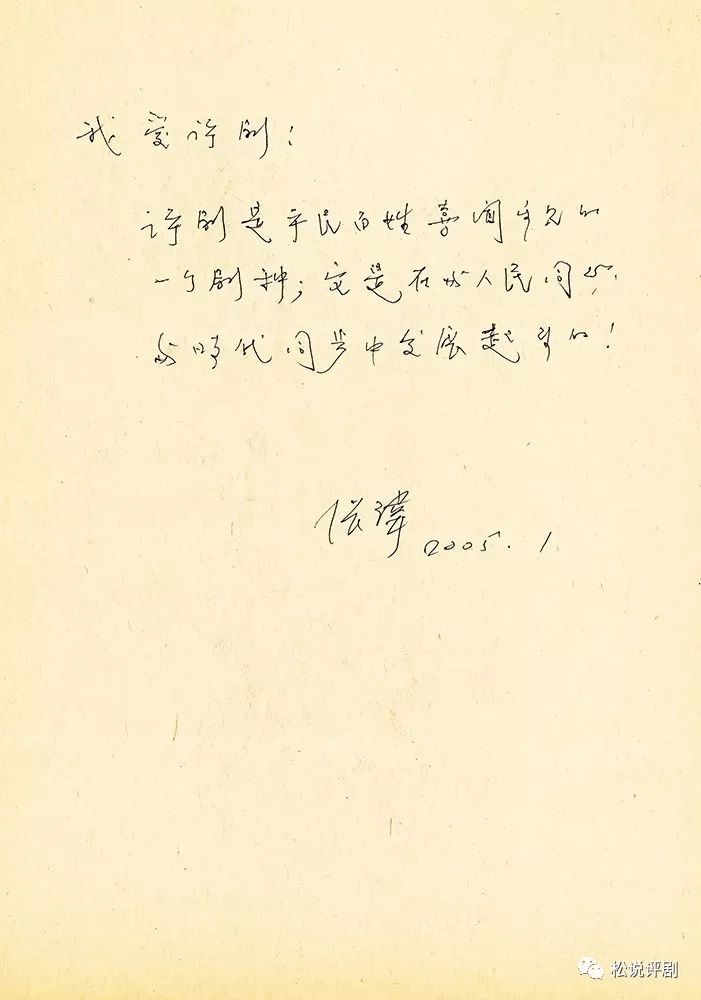 我爱评剧：
评剧是平民百姓喜闻乐见的
一个剧种；它是在与人民同心、
与時代同步中发展起来的！
張瑋 2005.1
松说评剧